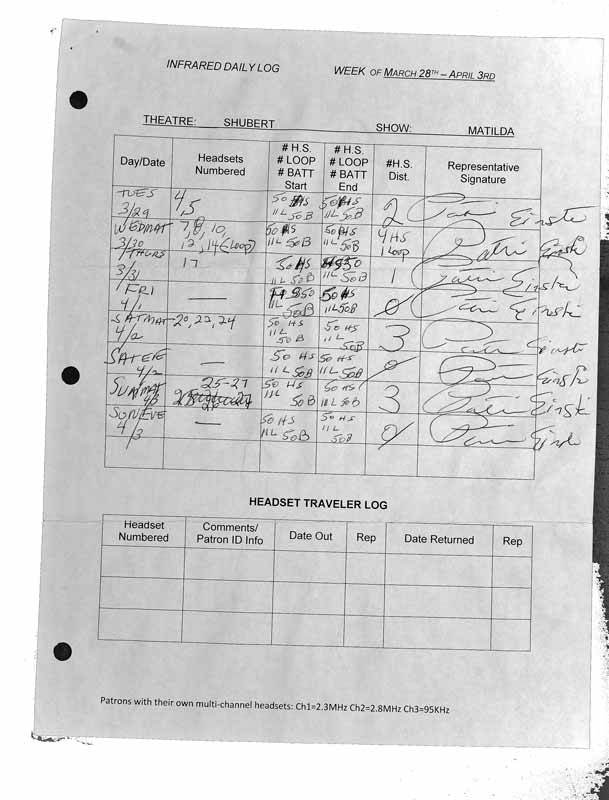 INFRARED DAILY LOG WEEK OF MARCH 28TH – APRIL 3RD
THEATRE: SHUBERT SHOW: MATILDA
Day/Date
Headsets Numbered
# H.S. # LOOP # BATT Start
# H.S. # LOOP # BATT End
#H.S. Dist.
Representative Signature
TUES 3/29 4,5 50 HS 11L 50B 50 HS 11L 50B 2
WEDMAT 3/30 7, 8, 10, 12, 14 (LOOP) 50 HS 11L 50B 50 HS 11L 50B 4 HS 1 LOOP
THURS 3/31 17 50 HS 11L 50B 11L 50B 1
FRI 4/1 — 11L 50B 50 HS 11L 50B 0
SATMAT 4/2 20, 22, 24 50 HS 11L 50B 50 HS 11L 50B 3
SATEVE 4/2 — 50 HS 11L 50B 50 HS 11L 50B 0
SUNMAT 4/3 25-27 50 HS 11L 50B 50 HS 11L 50B 3
SUNEVE 4/3 — 50 HS 11L 50B 50 HS 11L 50B 0
HEADSET TRAVELER LOG
Headset Numbered
Comments/ Patron ID Info
Date Out
Rep
Date Returned
Rep
Patrons with their own multi-channel headsets: Ch1=2.3MHz Ch2=2.8MHz Ch3=95KHz